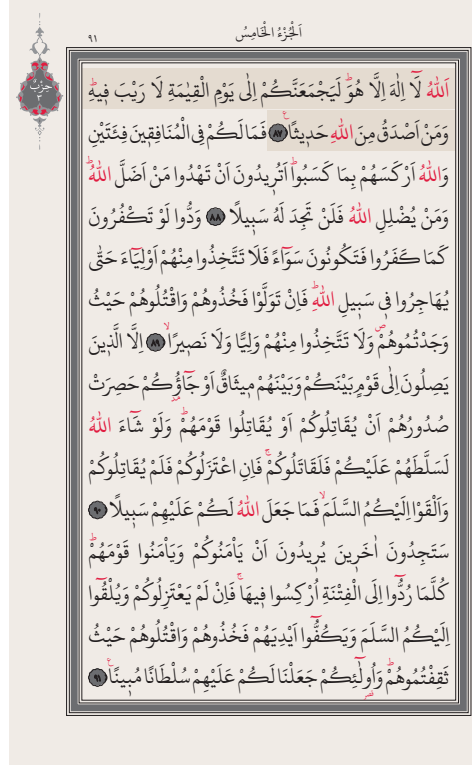 اَلْجُزْءُ الْخَامِسُ
٩١
حِزْبٌ
اَللّٰهُ لَٓا اِلٰهَ اِلَّا هُوَۜ لَيَجْمَعَنَّكُمْ اِلٰى يَوْمِ الْقِيٰمَةِ لَا رَيْبَ ف۪يهِۜ
وَمَنْ اَصْدَقُ مِنَ اللّٰهِ حَد۪يثًاۚ ﴿٨٧﴾ فَمَا لَكُمْ فِي الْمُنَافِق۪ينَ فِئَتَيْنِ
وَاللّٰهُ اَرْكَسَهُمْ بِمَا كَسَبُواۜ اَتُر۪يدُونَ اَنْ تَهْدُوا مَنْ اَضَلَّ اللّٰهُۜ
وَمَنْ يُضْلِلِ اللّٰهُ فَلَنْ تَجِدَ لَهُ سَب۪يلًا ﴿٨٨﴾ وَدُّوا لَوْ تَكْفُرُونَ
كَمَا كَفَرُوا فَتَكُونُونَ سَوَٓاءً فَلَا تَتَّخِذُوا مِنْهُمْ اَوْلِيَٓاءَ حَتّٰى
يُهَاجِرُوا ف۪ي سَب۪يلِ اللّٰهِۜ فَاِنْ تَوَلَّوْا فَخُذُوهُمْ وَاقْتُلُوهُمْ حَيْثُ
وَجَدْتُمُوهُمْۖ وَلَا تَتَّخِذُوا مِنْهُمْ وَلِيًّا وَلَا نَص۪يرًاۙ ﴿٨٩﴾ اِلَّا الَّذ۪ينَ
يَصِلُونَ اِلٰى قَوْمٍ بَيْنَكُمْ وَبَيْنَهُمْ م۪يثَاقٌ اَوْ جَٓاؤُ۫كُمْ حَصِرَتْ
صُدُورُهُمْ اَنْ يُقَاتِلُوكُمْ اَوْ يُقَاتِلُوا قَوْمَهُمْۜ وَلَوْ شَٓاءَ اللّٰهُ
لَسَلَّطَهُمْ عَلَيْكُمْ فَلَقَاتَلُوكُمْۚ فَاِنِ اعْتَزَلُوكُمْ فَلَمْ يُقَاتِلُوكُمْ
وَاَلْقَوْا اِلَيْكُمُ السَّلَمَۙ فَمَا جَعَلَ اللّٰهُ لَكُمْ عَلَيْهِمْ سَب۪يلًا ﴿٩٠﴾
سَتَجِدُونَ اٰخَر۪ينَ يُر۪يدُونَ اَنْ يَأْمَنُوكُمْ وَيَأْمَنُوا قَوْمَهُمْۜ
كُلَّمَا رُدُّٓوا اِلَى الْفِتْنَةِ اُرْكِسُوا ف۪يهَاۚ فَاِنْ لَمْ يَعْتَزِلُوكُمْ وَيُلْقُٓوا
اِلَيْكُمُ السَّلَمَ وَيَكُفُّٓوا اَيْدِيَهُمْ فَخُذُوهُمْ وَاقْتُلُوهُمْ حَيْثُ
ثَقِفْتُمُوهُمْۜ وَاُو۬لٰٓئِكُمْ جَعَلْنَا لَكُمْ عَلَيْهِمْ سُلْطَانًا مُب۪ينًا۟ ﴿٩١﴾